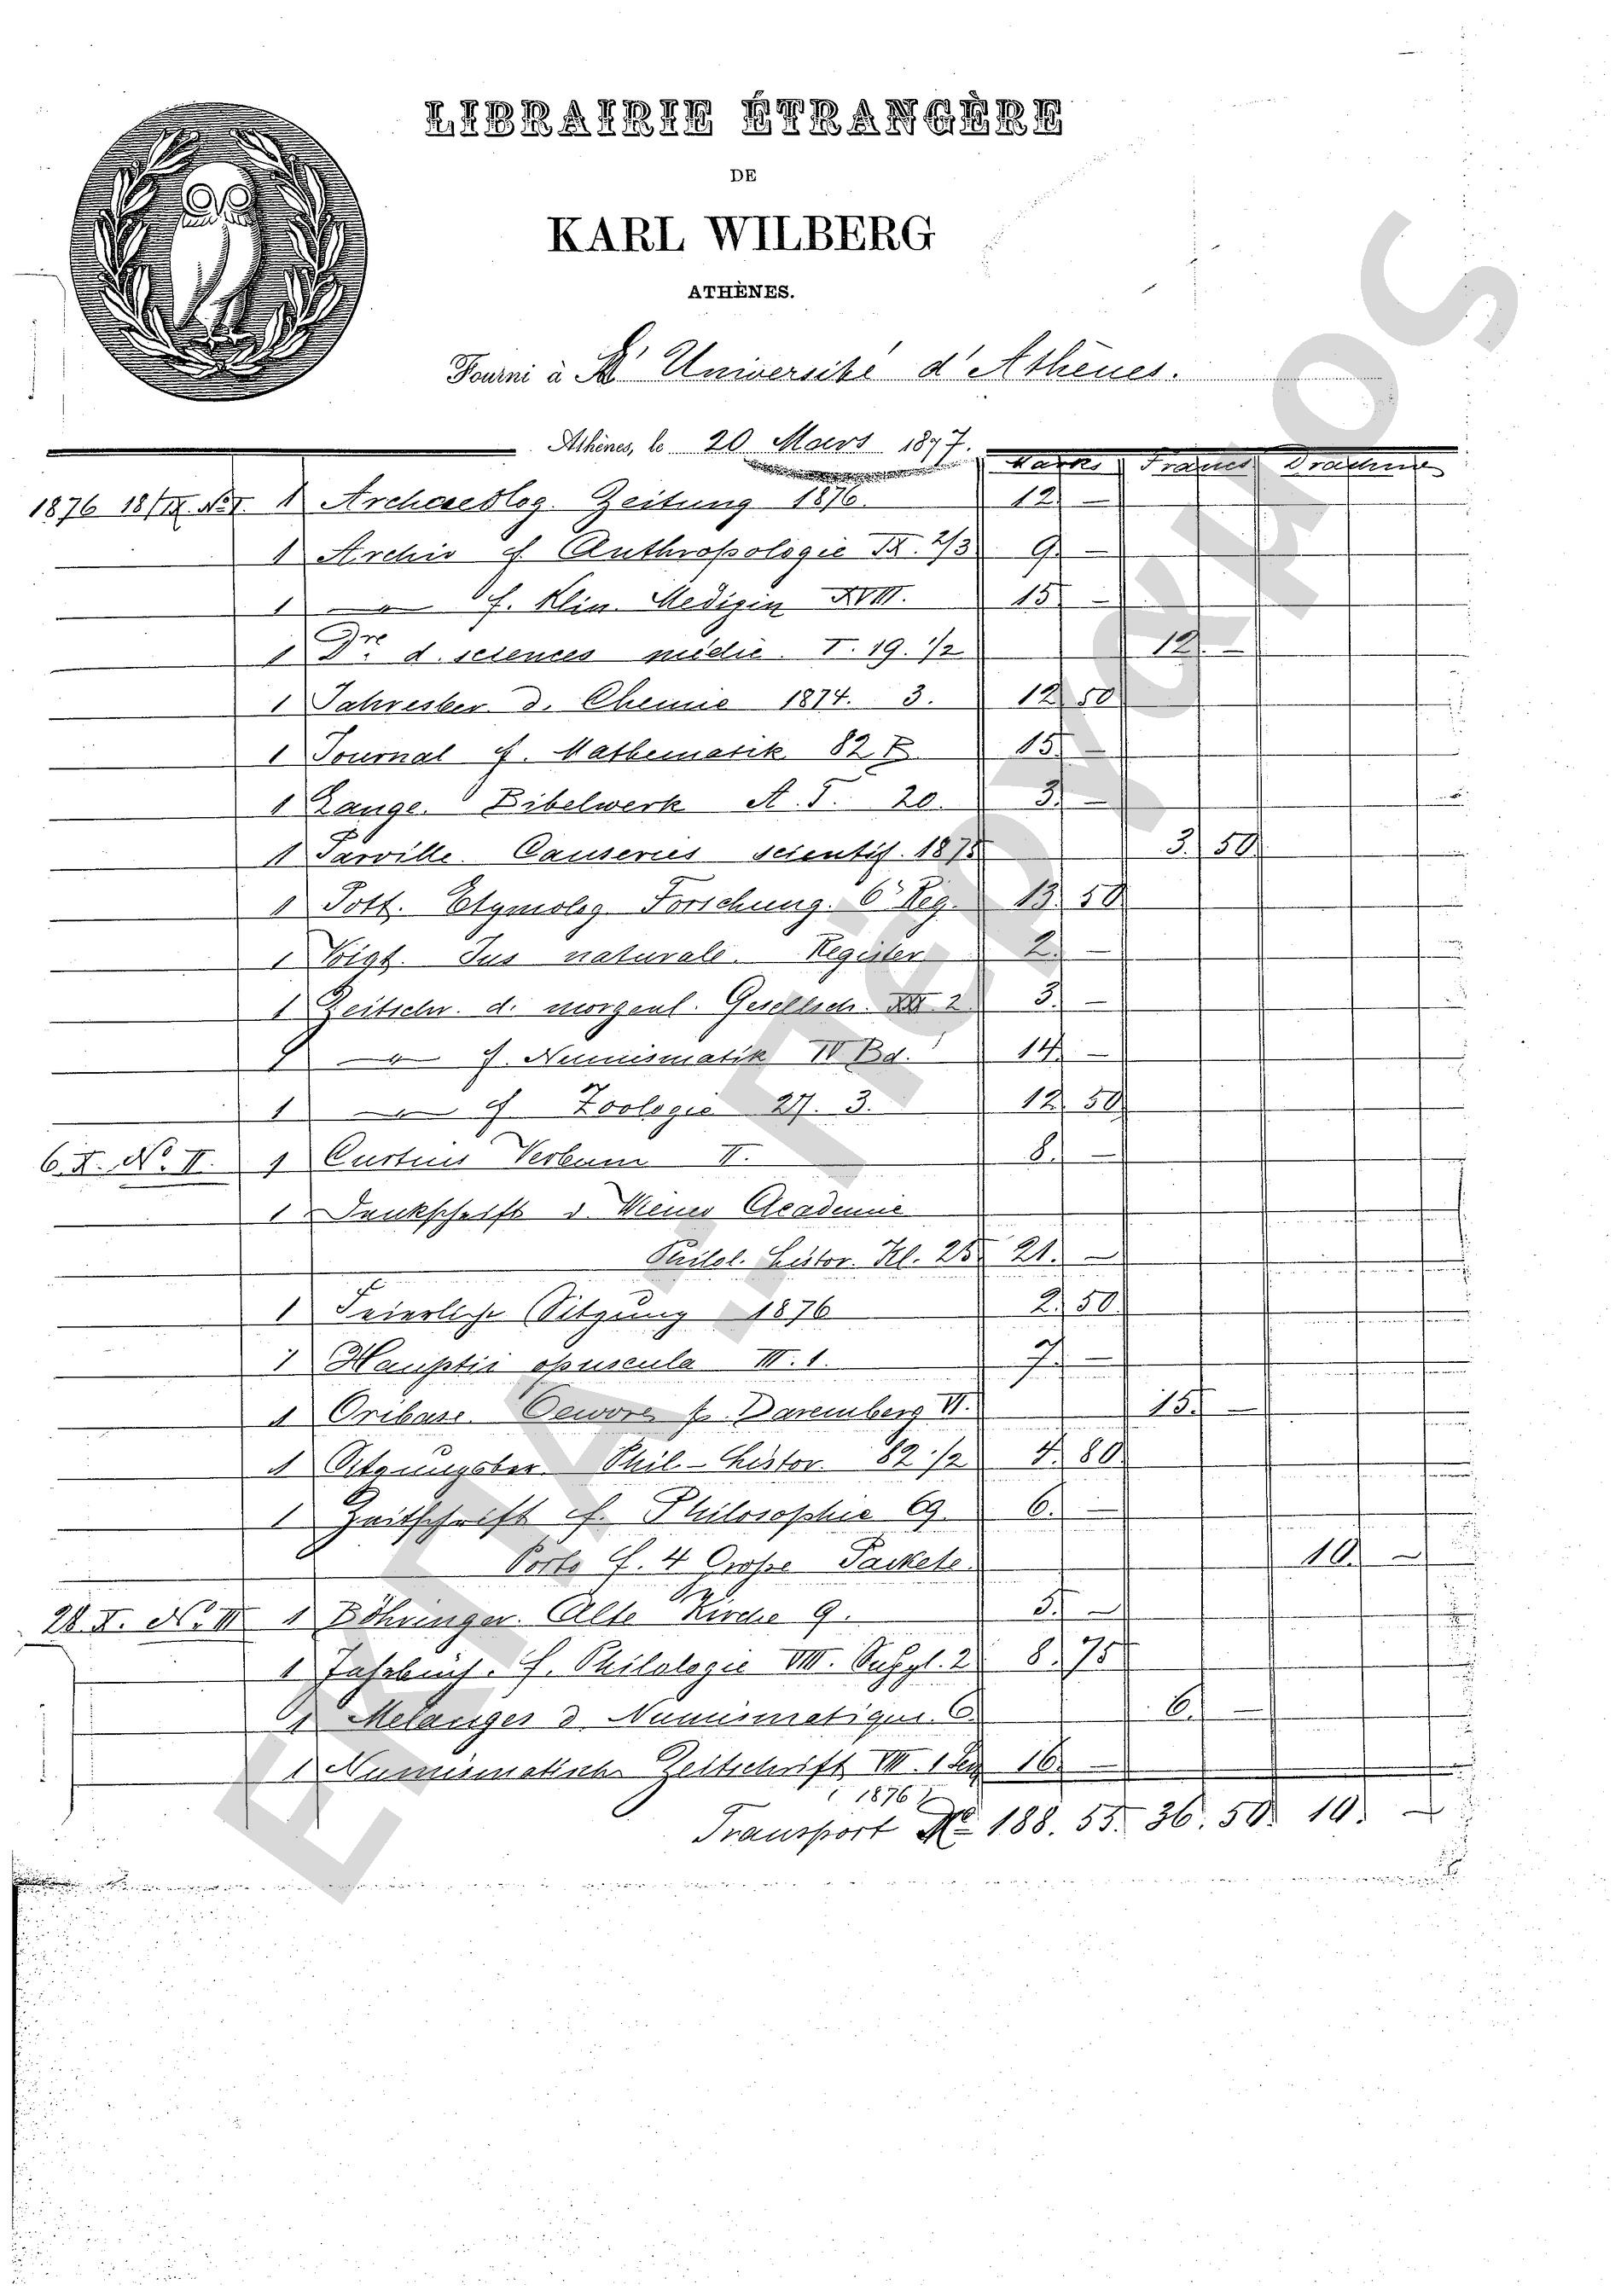 LIBRAIRIE ÉTRANGÈRE
DE
KARL WILBERG
ATHÈNES.
Fourni à l' Université d'Athènes.
Athènes, le 20 Mars 1877.
Mark Francs Drachme
1876 18/IX. No I. 1 Archaeolog. Zeitung 1876. 12. —
1 Archiv f. Anthropologie IX. 2/3 9. —
1 —"— f. klin. Medizin XVIII. 15 —
1 Dre d. sciences médic. T. 19. 1/2 12. —
1 Jahresber. d. Chemie 1874. 3. 12 50
1 Journal f. Mathematik 82 B. 15. —
1 Lange. Bibelwerk A. T. 20. 3. —
1 Parville. Causeries scientif. 1875 3. 50
1 Pott. Etymolog. Forschung. 6 Reg. 13. 50
1 Voigt. Jus naturale. Register 2. —
1 Zeitschr. d. morgenl. Gesellsch. XXX 2. 3. —
1 —"— f. Numismatik IV Bd. 14. —
1 —"— f. Zoologie 27. 3. 12. 50
6. X. No. II. 1 Curtius Verbum II. 8. —
1 Denkschrift d. Wiener Academie
Philol. histor. Kl. 25 21. —
1 Feierliche Sitzung 1876 2. 50
1 Hauptii opuscula III. 1. 7. —
1 Oribase. Oeuvre p. Daremberg VI. 15. —
1 Sitzungsber. Phil.-histor. 82 1/2 4. 80
1 Zeitschrift f. Philosophie 69. 6. —
Porto f. 4 Große Packete. 10. —
28 X. No. III 1 Böhringer. Alte Kirche 9. 5. —
1 Jahrbuch. f. Philologie VIII. Suppl. 2 8. 75
1 Melanges d. Numismatique. 6. —
1 Numismatische Zeitschrift VIII. 1 Sem 16. —
( 1876 )
Transport 188. 55. 36. 50. 10. —
ΕΚΠΑ, Πέργαμος